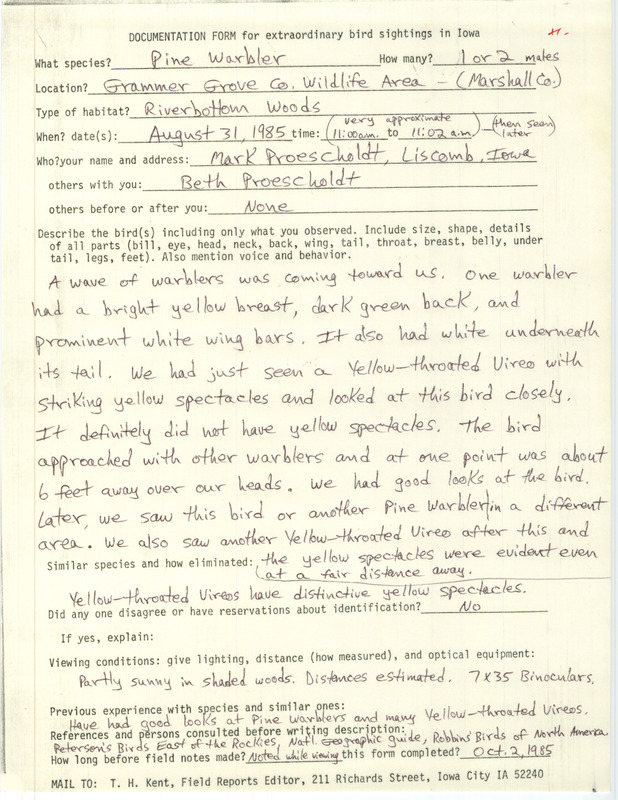 DOCUMENTATION FORM for extraordinary bird sightings in Iowa
What species? Pine Warbler How many? 1 or 2 males
Location? Grammer Grove Co. Wildlife Area - (Marshall Co.)
Type of habitat? Riverbottom Woods
When? date(s): August 31, 1985 time: (very approximate 11:00am. to 11:02 a.m.) - (then seen later)
Who? your name and address: Mark Proescholdt, Liscomb, Iowa
others with you: Beth Proescholdt
others before or after you: None
Describe the bird(s) including only what you observed. Include size, shape, details
of all parts (bill, eye, head, neck, back, wing, tail, throat, breast, belly, under
tail, legs, feet). Also mention voice and behavior.
A wave of warblers was coming toward us. One warbler
had a bright yellow breast, dark green back, and
prominent white wing bars. It also had white underneath
its tail. We had just seen a Yellow-throated Vireo with
striking yellow spectacles and looked at this bird closely.
It definitely did not have yellow spectacles. The bird
approached with other warblers and at one point was about
6 feet away over our heads. We had good looks at the bird.
Later, we saw this bird or another Pine Warbler in a different
area. We also saw another Yellow-throated Vireo after this and
Similar species and how eliminated: the yellow spectacles were evident even
at a fair distance away.
Yellow-throated Vireos have distinctive yellow spectacles.
Did any one disagree or have reservations about identification? No
If yes, explain:
Viewing conditions: give lighting, distance (how measured), and optical equipment:
Partly sunny in shaded woods. Distances estimated. 7x35 Binoculars.
Previous experience with species and similar ones:
Have had good looks at Pine Warblers and many Yellow-throated Vireos.
References and persons consulted before writing description:
Peterson's Birds East of the Rockies, Nat'l. Geographic guide, Robbins' Birds of North America
How long before field notes made? Noted while viewing this form completed? Oct. 2, 1985
MAIL TO: T. H. Kent, Field Reports Editor, 211 Richards Street, Iowa City IA 52240